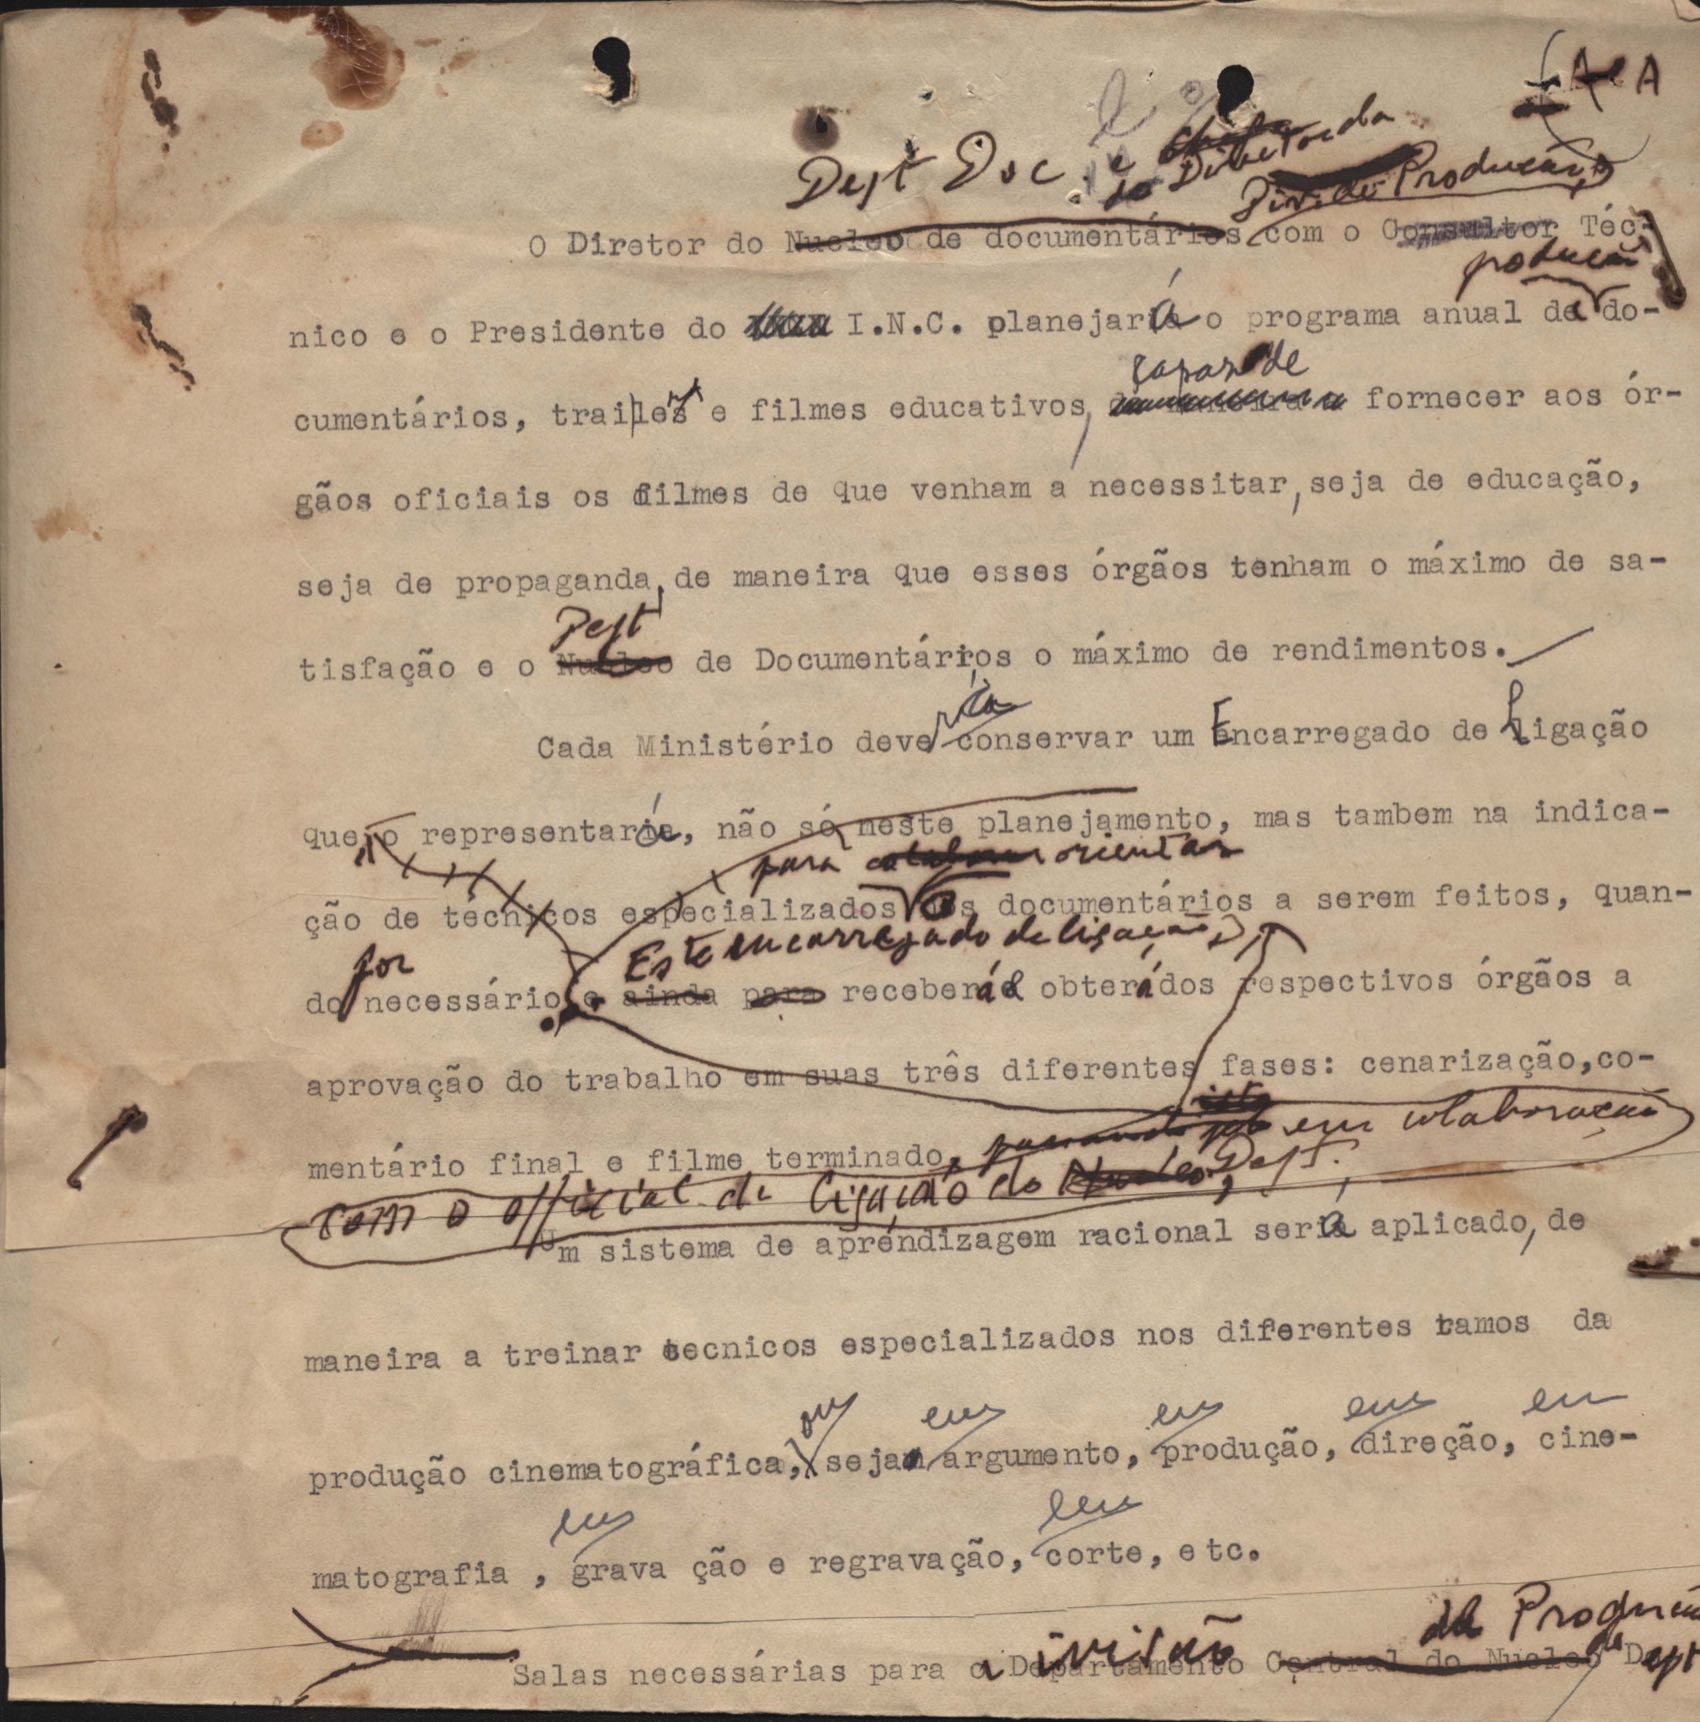 A
Dept Doc. e Diretor da
Div. de Produção
O Diretor do Nucleo de documentários com o Consultor Téc-
produção
nico e o Presidente do I.N.C. planejará o programa anual de do-
capaz de
cumentários, trailes e filmes educativos, fornecer aos ór-
gãos oficiais os filmes de que venham a necessitar, seja de educação,
seja de propaganda, de maneira que esses órgãos tenham o máximo de sa-
Dept
tisfação e o Nucleo de Documentários o máximo de rendimentos.
Cada Ministério deve conservar um Encarregado de Ligação
que o representará, não só neste planejamento, mas tambem na indica-
para orientar
ção de técnicos especializados os documentários a serem feitos, quan-
for Este encarregado de ligação
do necessário e ainda para receberá e obterá dos respectivos órgãos a
aprovação do trabalho em suas três diferentes fases: cenarização, co-
isto
mentário final e filme terminado, em colaboração
com o official de ligação do Nucleo, Dept.
Um sistema de apréndizagem racional será aplicado, de
maneira a treinar tecnicos especializados nos diferentes ramos da
ou em em em em
produção cinematográfica, sejam argumento, produção, direção, cine-
em em
matografia , grava ção e regravação, corte, etc.
ivisão de Produção
Salas necessárias para a Departamento Central do Nucleo Dept